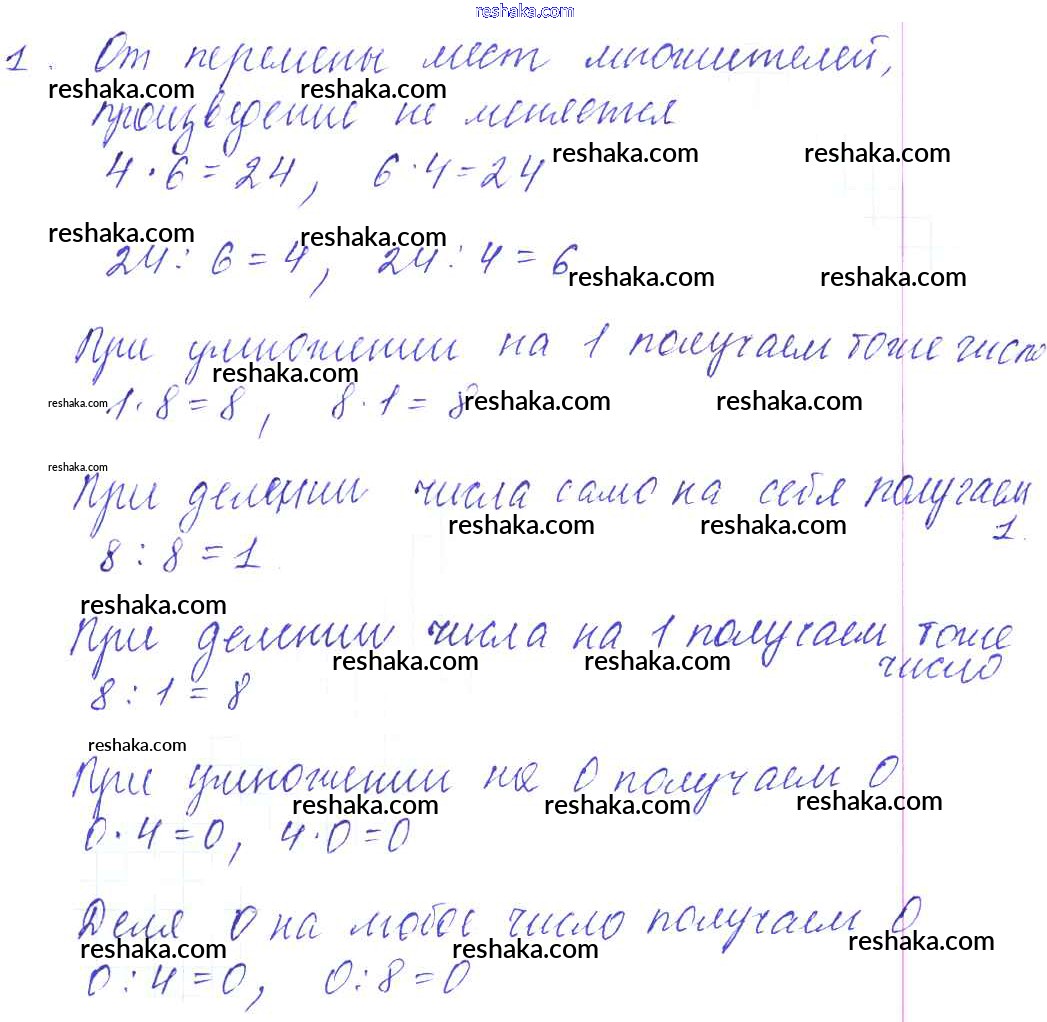 reshaka.com
1. От перемены мест множителей,
reshaka.com reshaka.com
произведение не меняется
reshaka.com reshaka.com
4 · 6 = 24, 6 · 4 = 24
reshaka.com reshaka.com
24 : 6 = 4, 24 : 4 = 6
reshaka.com reshaka.com
При умножении на 1 получаем тоже число
reshaka.com
reshaka.com 1 · 8 = 8, 8 · 1 = 8 reshaka.com reshaka.com
reshaka.com
При делении числа само на себя получаем
1.
reshaka.com reshaka.com
8 : 8 = 1
reshaka.com
При делении числа на 1 получаем тоже
число
reshaka.com reshaka.com
8 : 1 = 8
reshaka.com
При умножении на 0 получаем 0
reshaka.com reshaka.com reshaka.com
0 · 4 = 0, 4 · 0 = 0
Деля 0 на любое число получаем 0
reshaka.com reshaka.com reshaka.com
0 : 4 = 0, 0 : 8 = 0